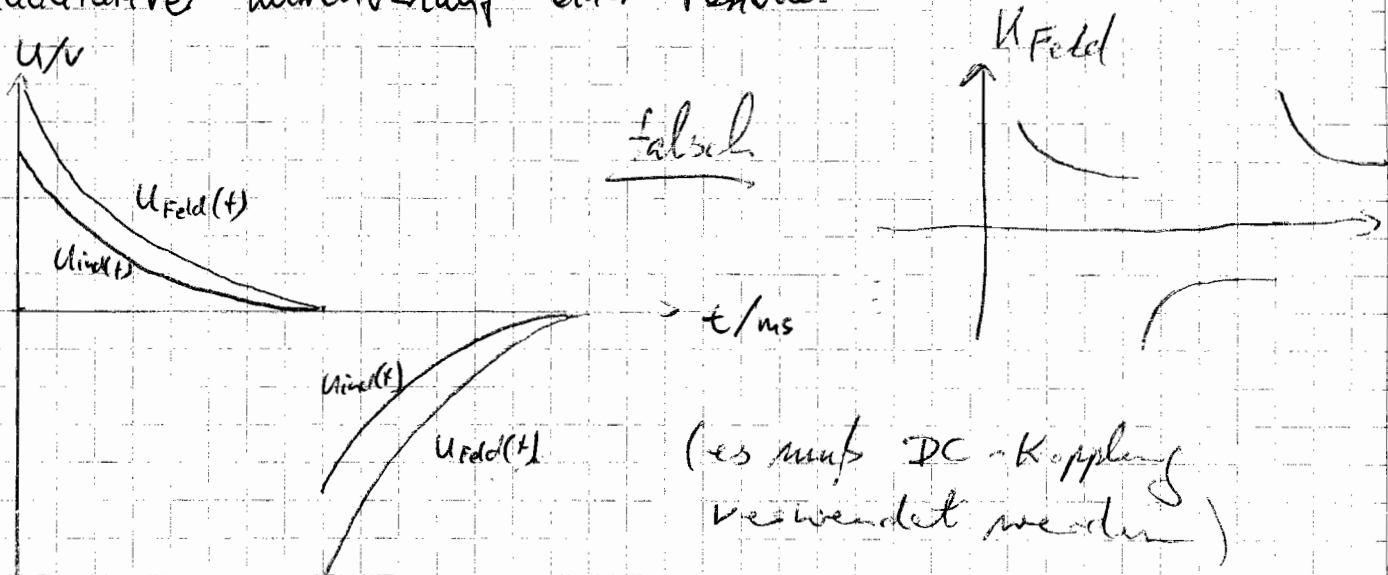 U/V
U_Feld(t)
U_ind(t)
t/ms
U_ind(t)
U_Feld(t)
falsch
U_Feld
(es muß DC-Kopplung
verwendet werden)